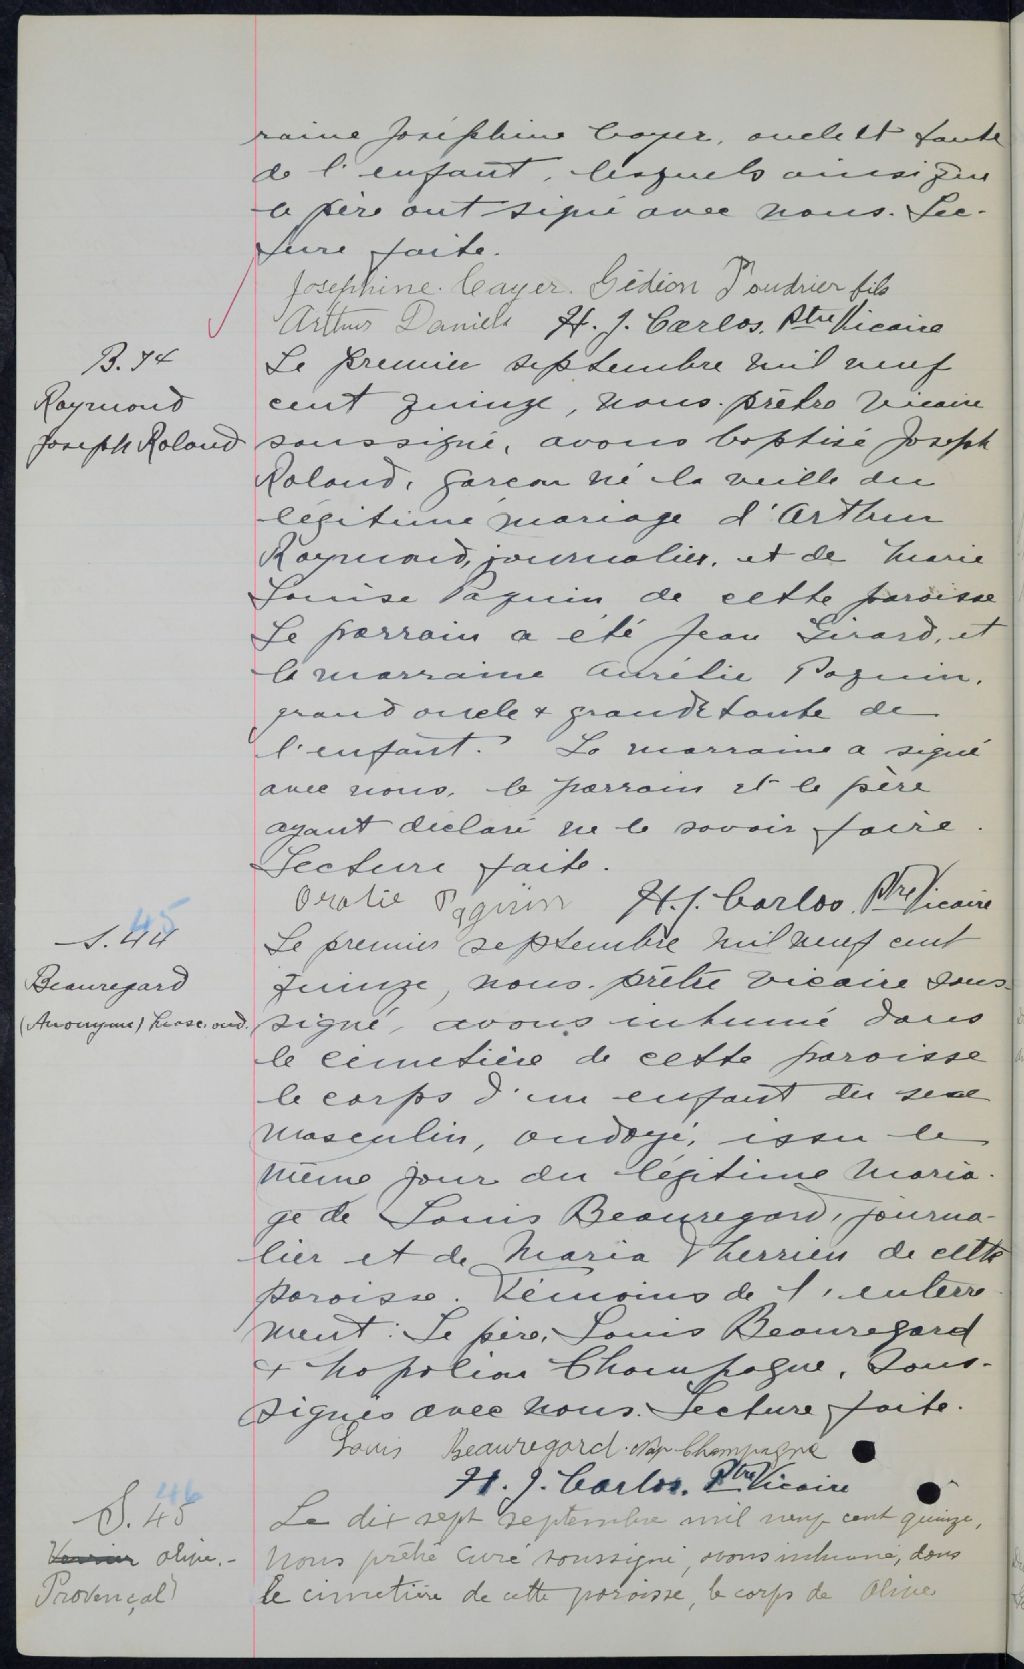 raine Joséphine Cayer, oncle et tante
de l'enfant, lesquels ainsi que
le père ont signé avec nous. Lec-
ture faite.
Josephine Cayer. Gédion Poudrier fils
Arthur Daniels H. J. Carlos. Ptre Vicaire
B. 74
Raymond
Joseph Roland
Le premier septembre mil neuf
cent quinze, nous prêtre vicaire
soussigné, avons baptisé Joseph
Roland, garçon né la veille du
légitime mariage d'Arthur
Raymond, journalier, et de Marie
Louise Paquin de cette paroisse
Le parrain a été Jean Girard, et
la marraine Aurélie Paquin,
grand oncle & grande tante de
l'enfant. La marraine a signé
avec nous, le parrain et le père
ayant déclaré ne le savoir faire.
Lecture faite.
Oralie Paquin H. J. Carlos Ptre Vicaire
45
S. 44
Beauregard
(Anonyme) masc. ond.
Le premier septembre mil neuf cent
quinze, nous prêtre vicaire sous-
signé, avons inhumé dans
le cimetière de cette paroisse
le corps d'un enfant du sexe
masculin, ondoyé, issu le
même jour du légitime maria-
ge de Louis Beauregard, journa-
lier et de Maria Therrien de cette
paroisse. Témoins de l'enterre
ment: Le père, Louis Beauregard
& Napoléon Champagne, sous-
signés avec nous. Lecture faite.
Louis Beauregard. Nap Champagne
H. J. Carlos. Ptre Vicaire
46
S. 45
Olive
Provençal
Le dix sept septembre mil neuf cent quinze,
Nous prêtre Curé soussigné, avons inhumé, dans
le cimetière de cette paroisse, le corps de Olive